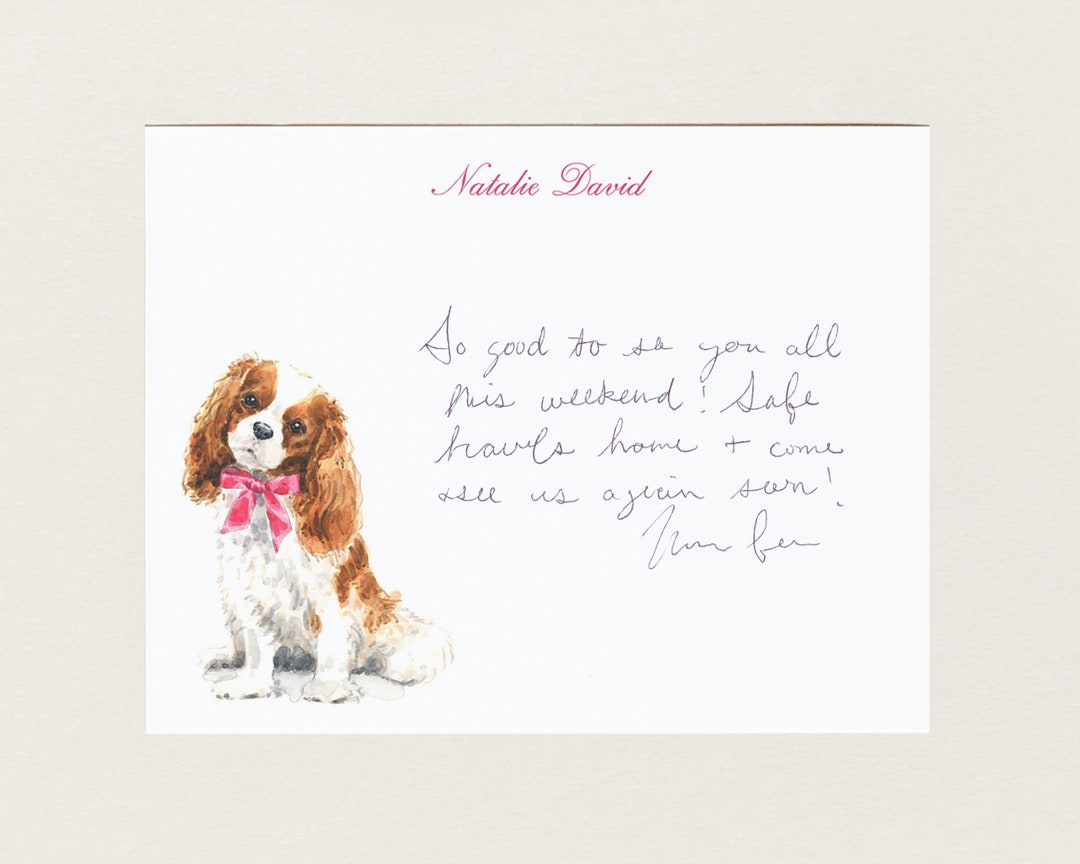 Natalie David
So good to see you all
this weekend! Safe
travels home + come
see us again soon!